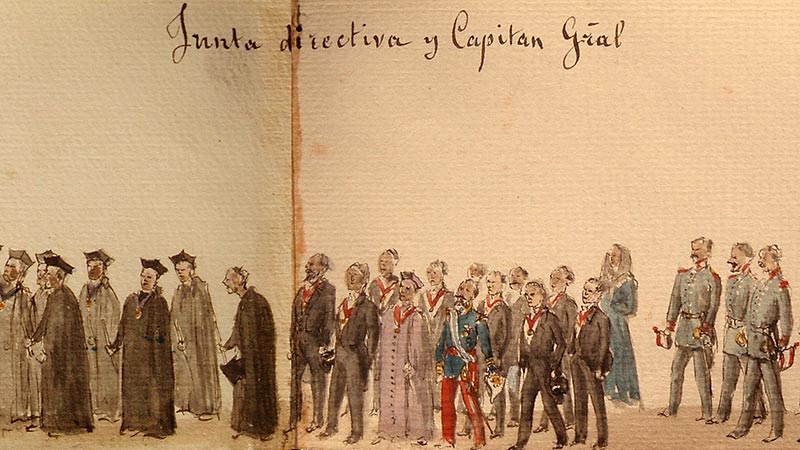 Junta directiva y Capitan Gr̃al